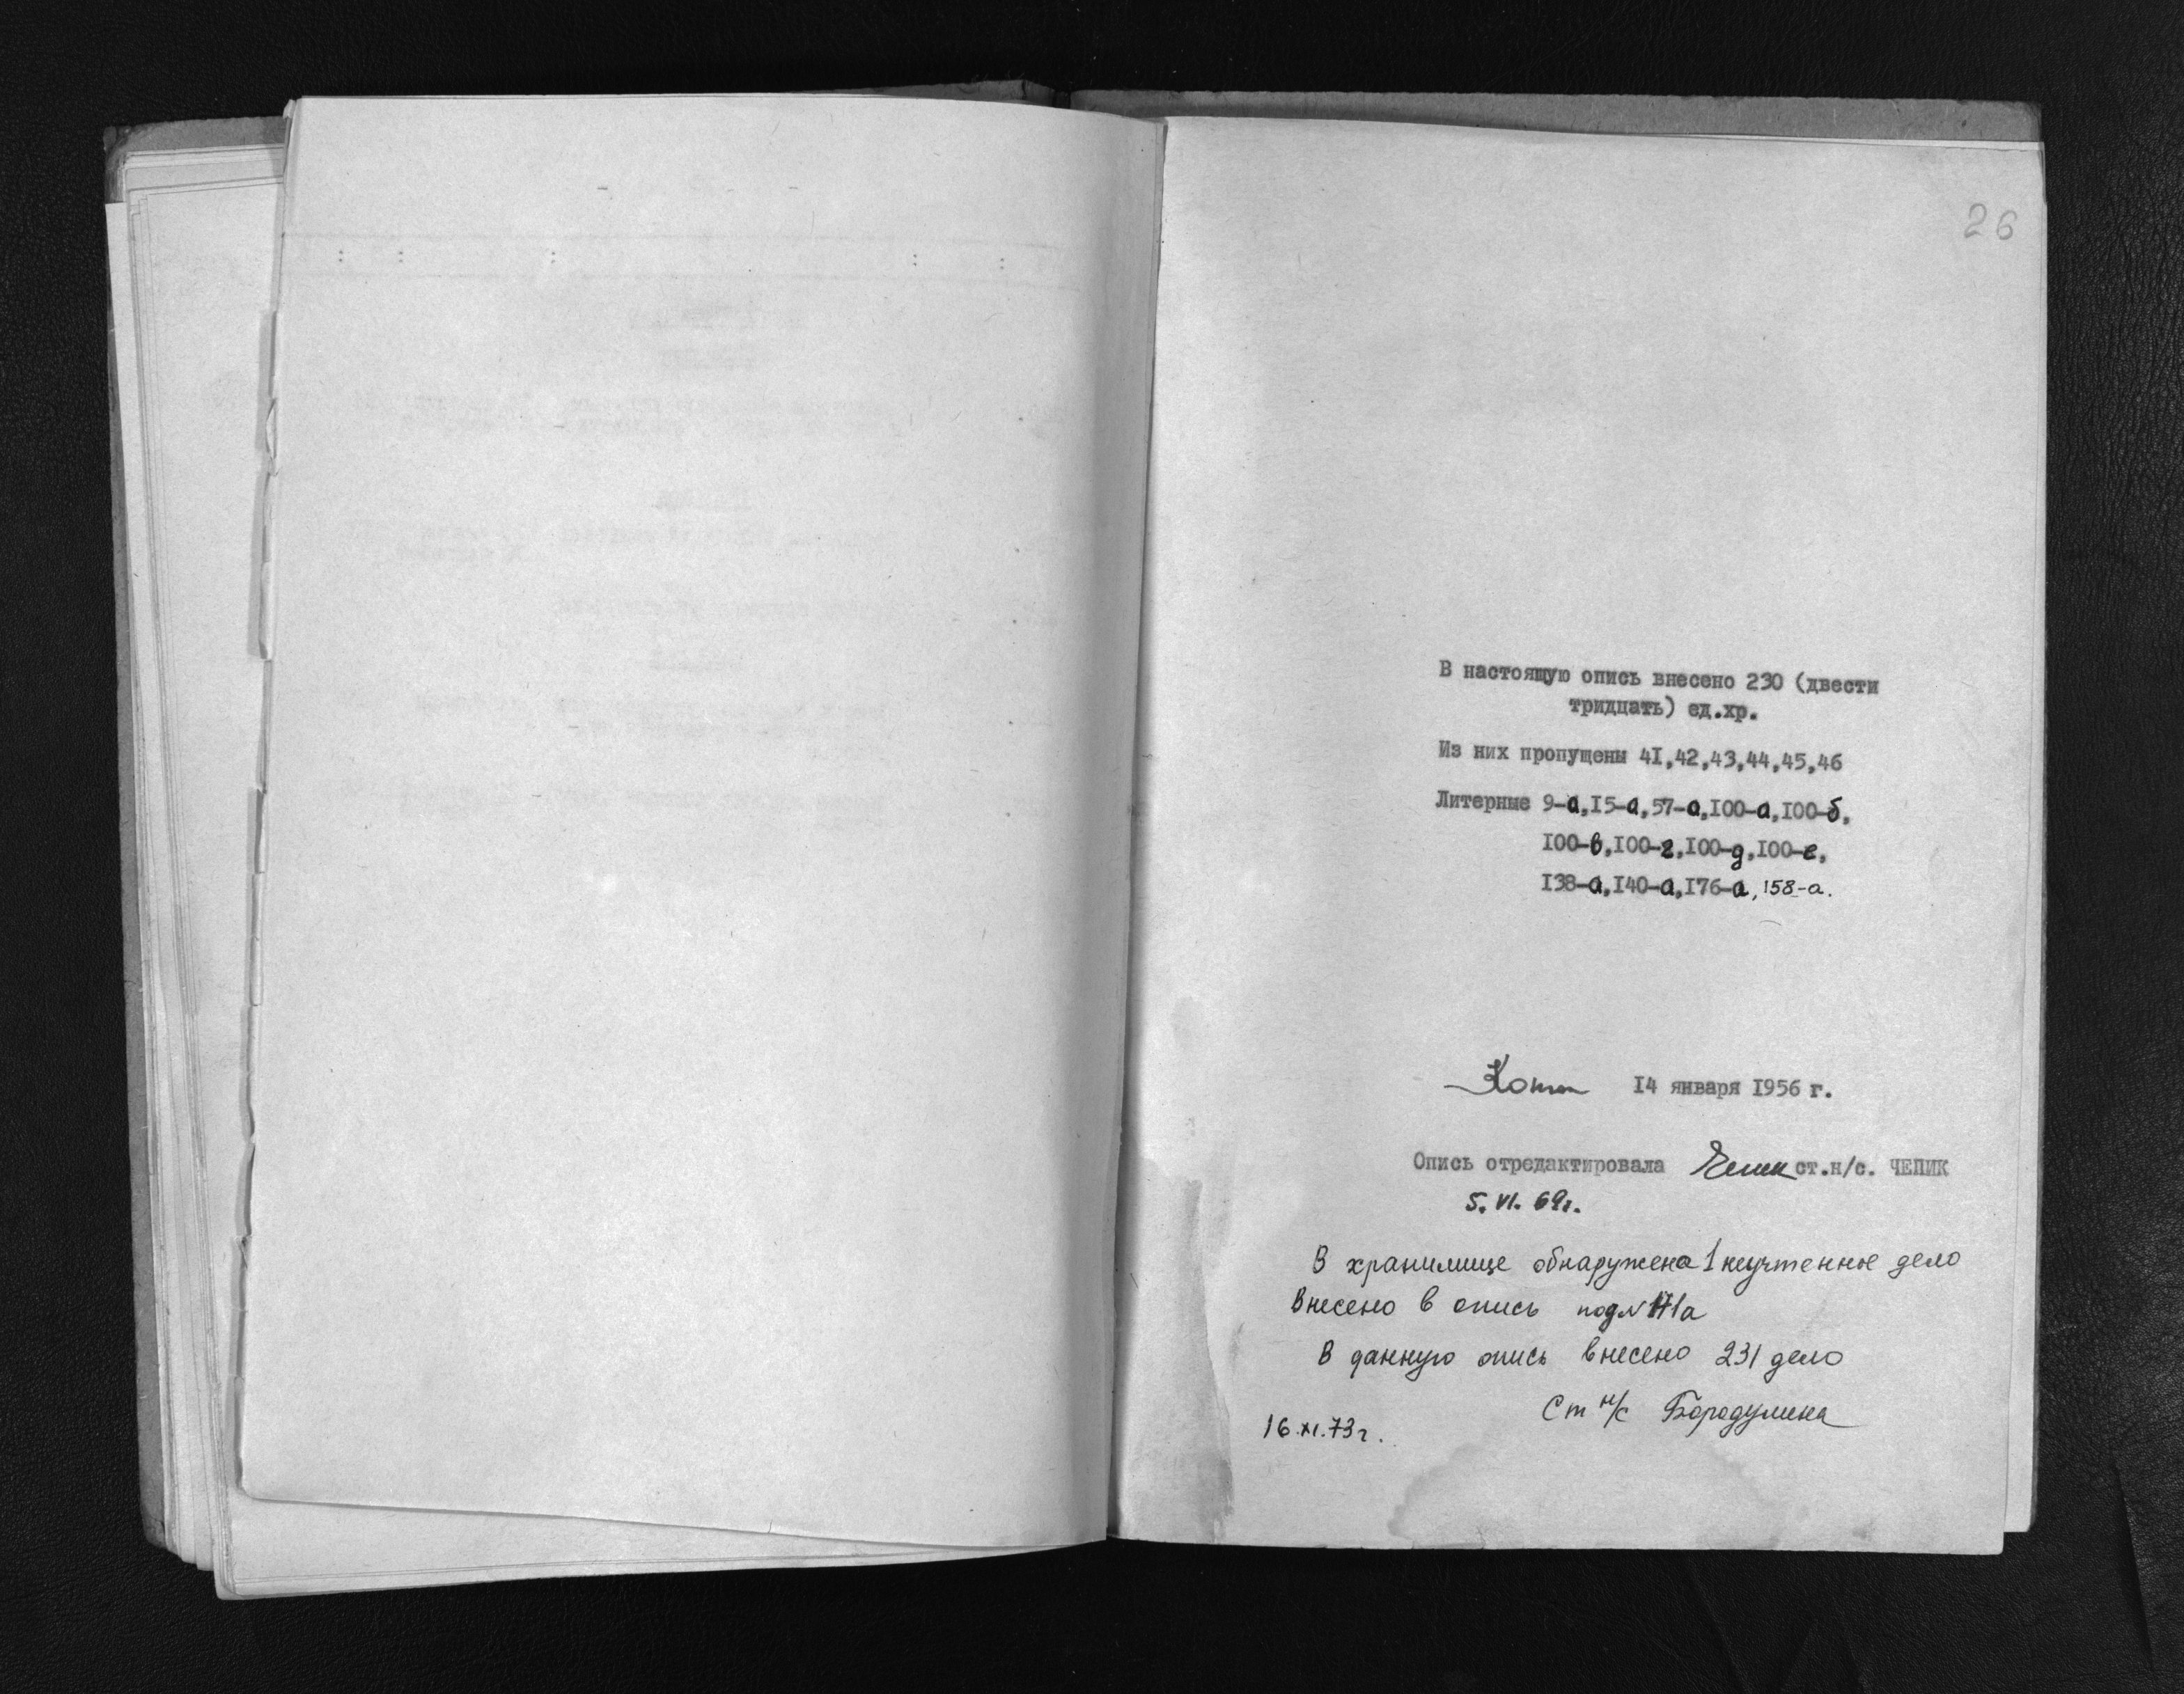 26
В настоящую опись внесено 230 (двести
тридцать) ед.хр.
Из них пропущены 41,42,43,44,45,46
Литерные 9-а,15-а,57-а,100-а,100-б,
100-в,100-г,100-д,100-е,
138-а,140-а,176-а,158-а.
14 января 1956 г.
Опись отредактировала Чепик ст.н/с. ЧЕПИК
5.VI.69г.
В хранилище обнаружено 1 неучтенное дело
Внесено в опись под №
В данную опись внесено 231 дело
Ст н/с Бородулина
16.XI.73г.